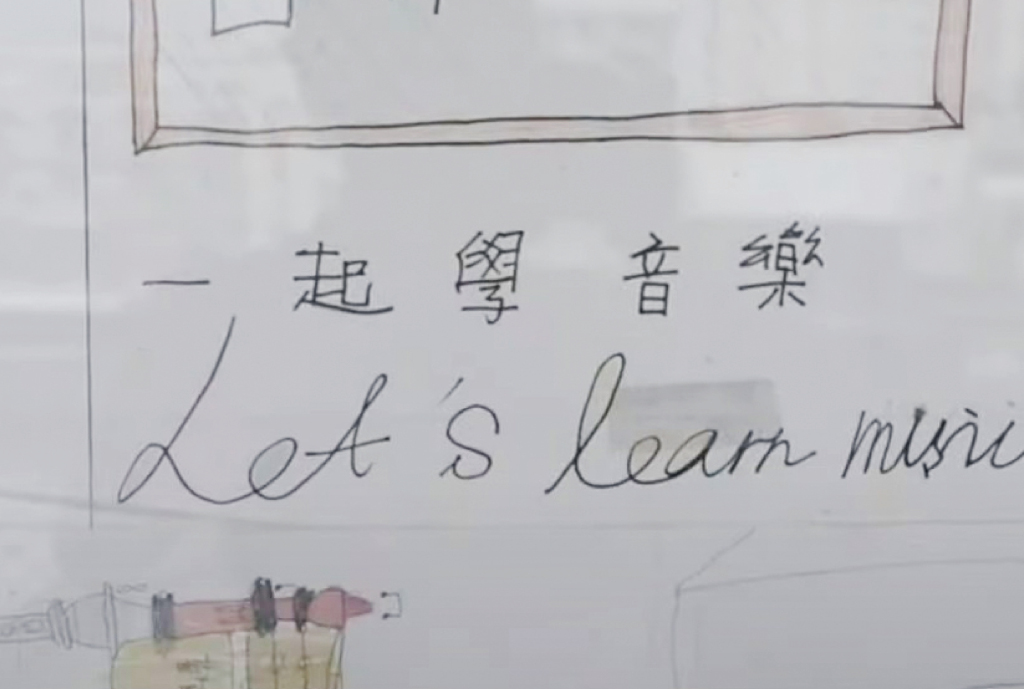 一起學音樂
Let's learn music